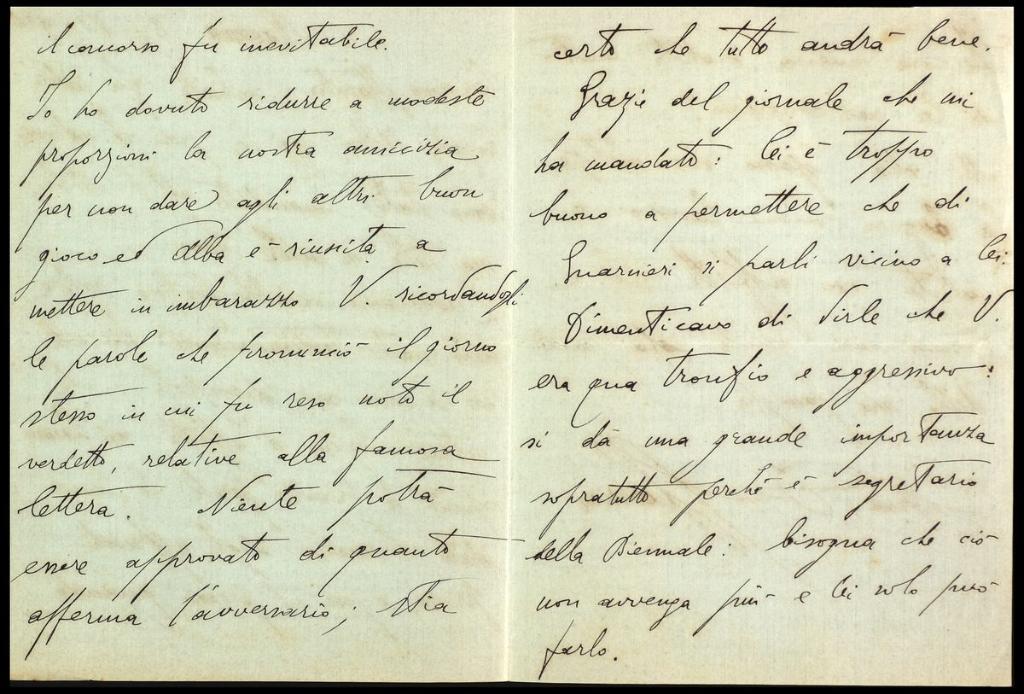 il concorso fu inevitabile.
Io ho dovuto ridurre a modeste
proporzioni la nostra amicizia
per non dare agli altri buon
gioco ed Alba è riuscita a
mettere in imbarazzo V. ricordandogli
le parole che pronunciò il giorno
stesso in cui fu reso noto il
verdetto, relative alla famosa
lettera. Niente potrà
essere approvato di quanto
afferma l'avversario; stia
certo che tutto andrà bene.
Grazie del giornale che mi
ha mandato: Lei è troppo
buono a permettere che di
Guarnieri si parli vicino a Lei.
Dimenticavo di dirle che V.
era qua tronfio e aggressivo:
si dà una grande importanza
sopratutto perchè è segretario
della Biennale: bisogna che ciò
non avvenga più e Lei solo può
farlo.